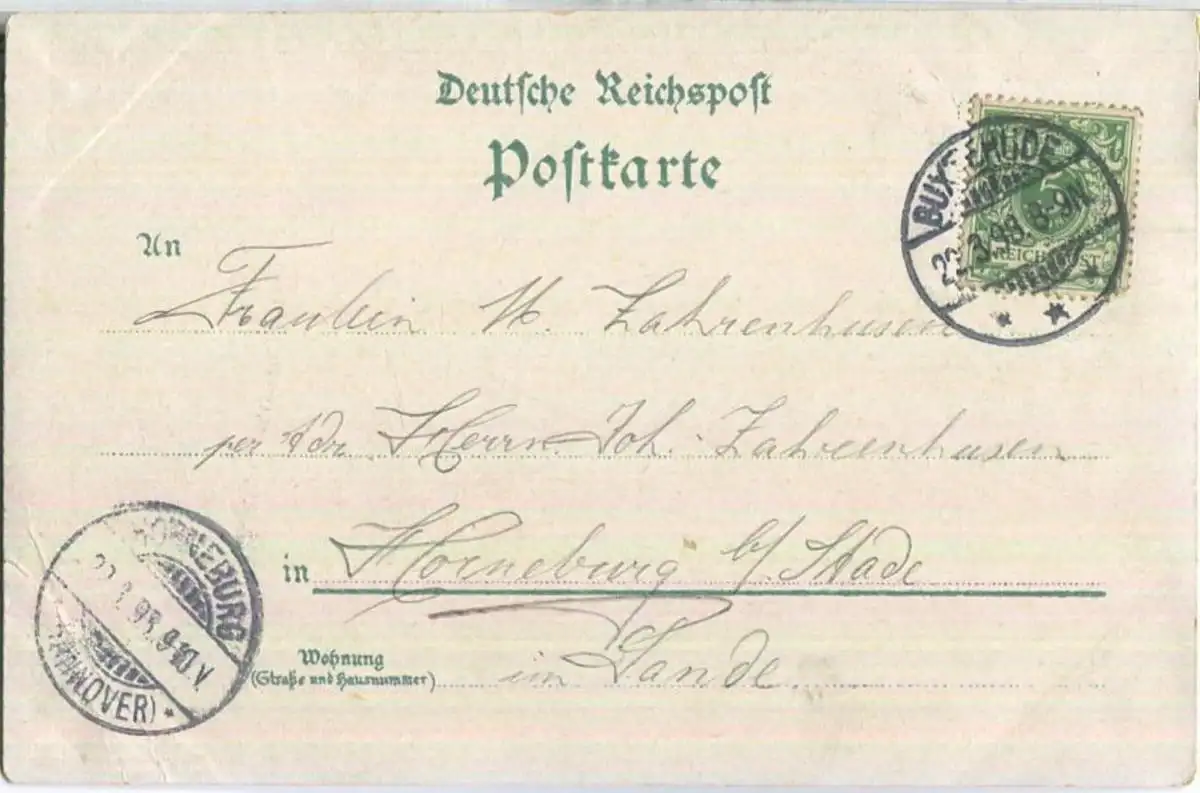 Deutsche Reichspost
Postkarte
BUXTEHUDE
8-9N.
5
REICHSPOST
An
Fraulein M. Zahrenhusen
per Adr. Herrn Joh. Zahrenhusen
in Horneburg b/ Stade
HORNEBURG
9-10 V
(HANNOVER)
Wohnung
(Straße und Hausnummer)
im Lande